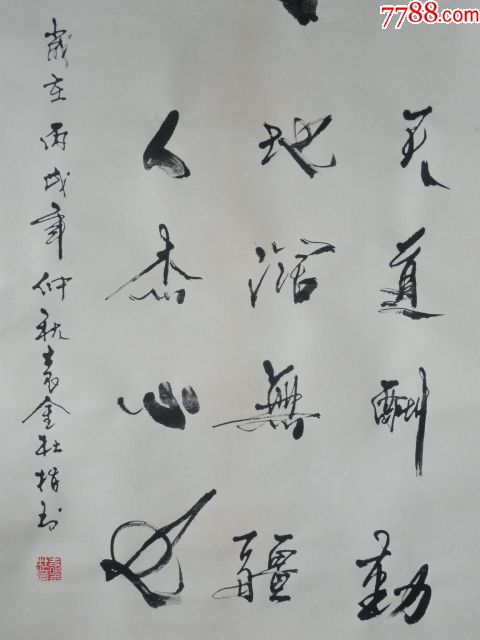 7788.com
天道酬勤
地濶無疆
人杰心
歲在丙戌年仲秋袁金杜书